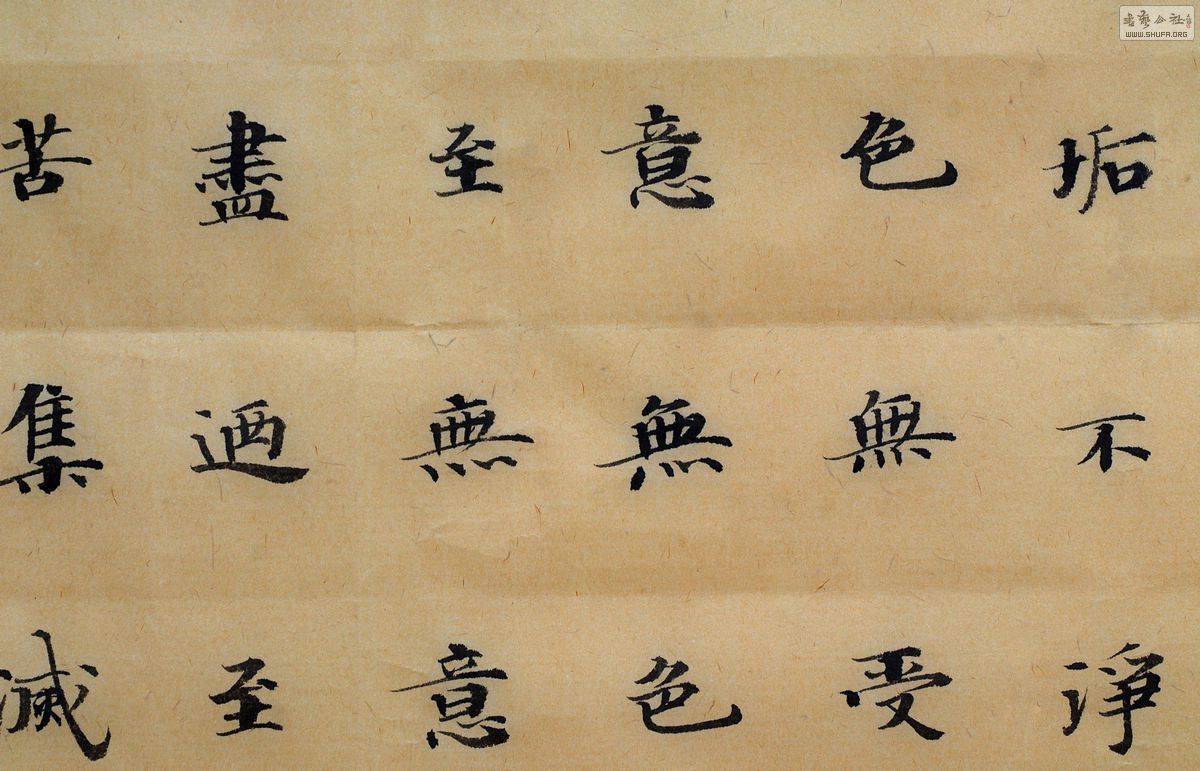 垢不淨
色無受
意無色
至無意
盡迺至
苦集滅
書藝公社
WWW.SHUFA.ORG